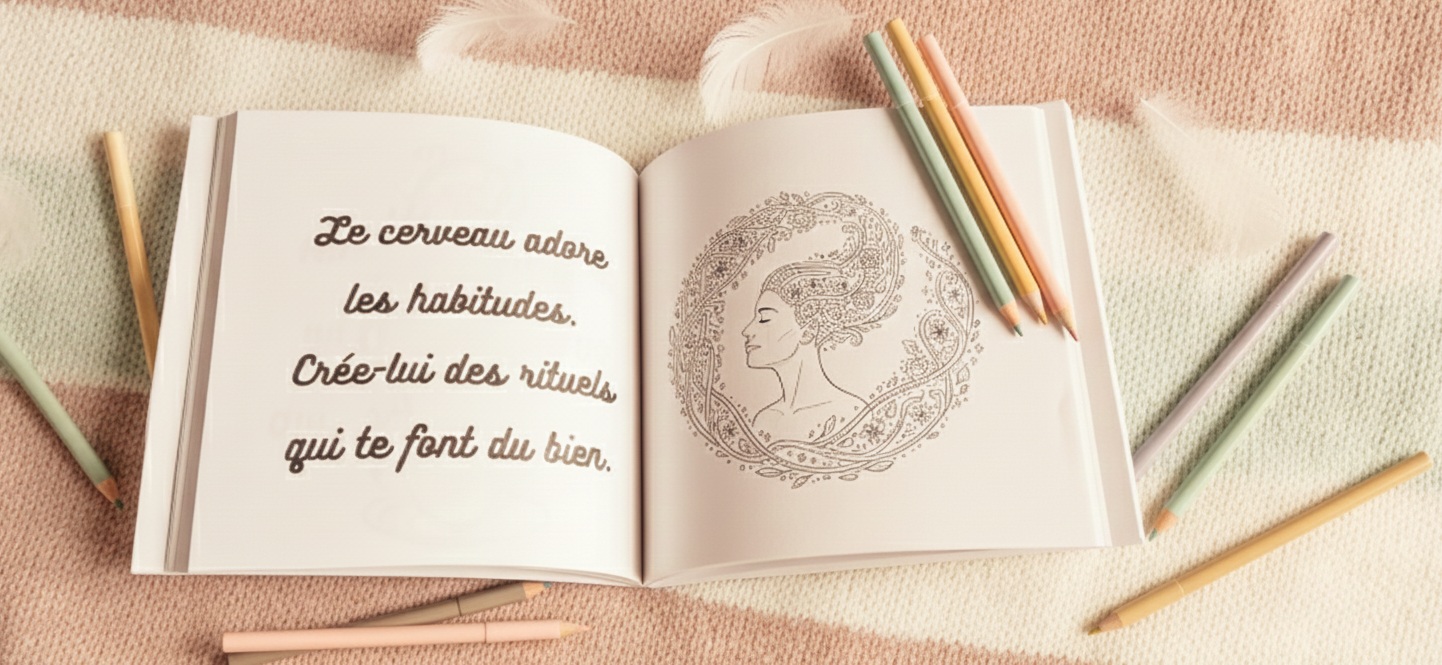 Le cerveau adore
les habitudes.
Crée-lui des rituels
qui te font du bien.